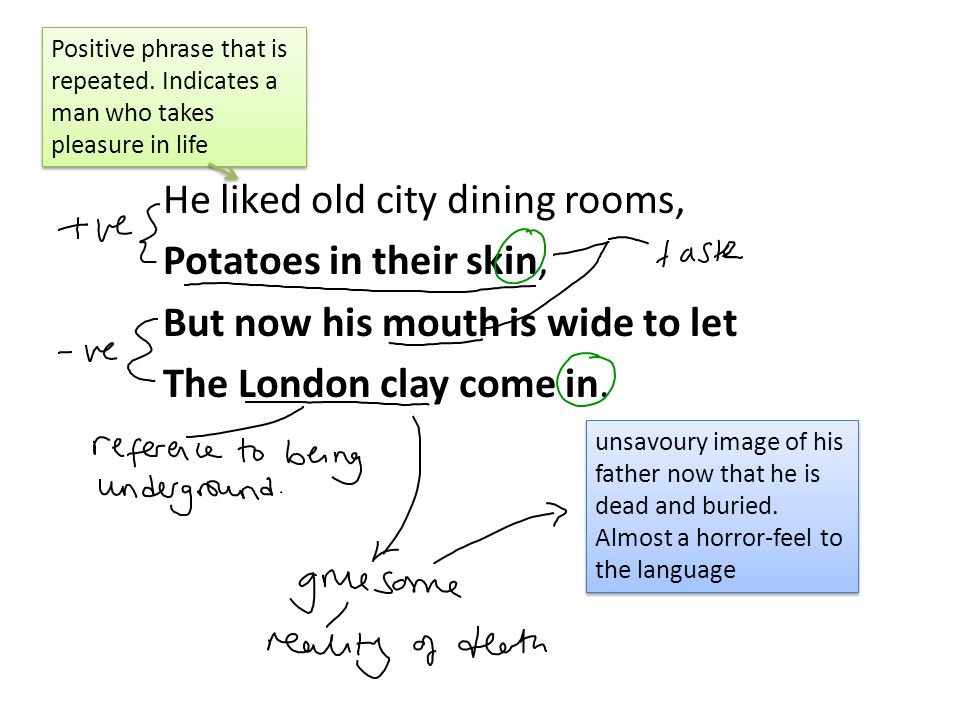 Positive phrase that is
repeated. Indicates a
man who takes
pleasure in life
He liked old city dining rooms,
+ve
Potatoes in their skin,
taste
But now his mouth is wide to let
-ve
The London clay come in.
reference to being
underground.
unsavoury image of his
father now that he is
dead and buried.
Almost a horror-feel to
the language
gruesome
reality of death